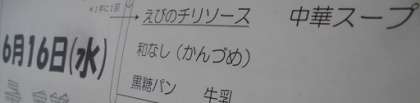 えびのチリソース
中華スープ
6月16日(水)
和なし(かんづめ)
黒糖パン
牛乳